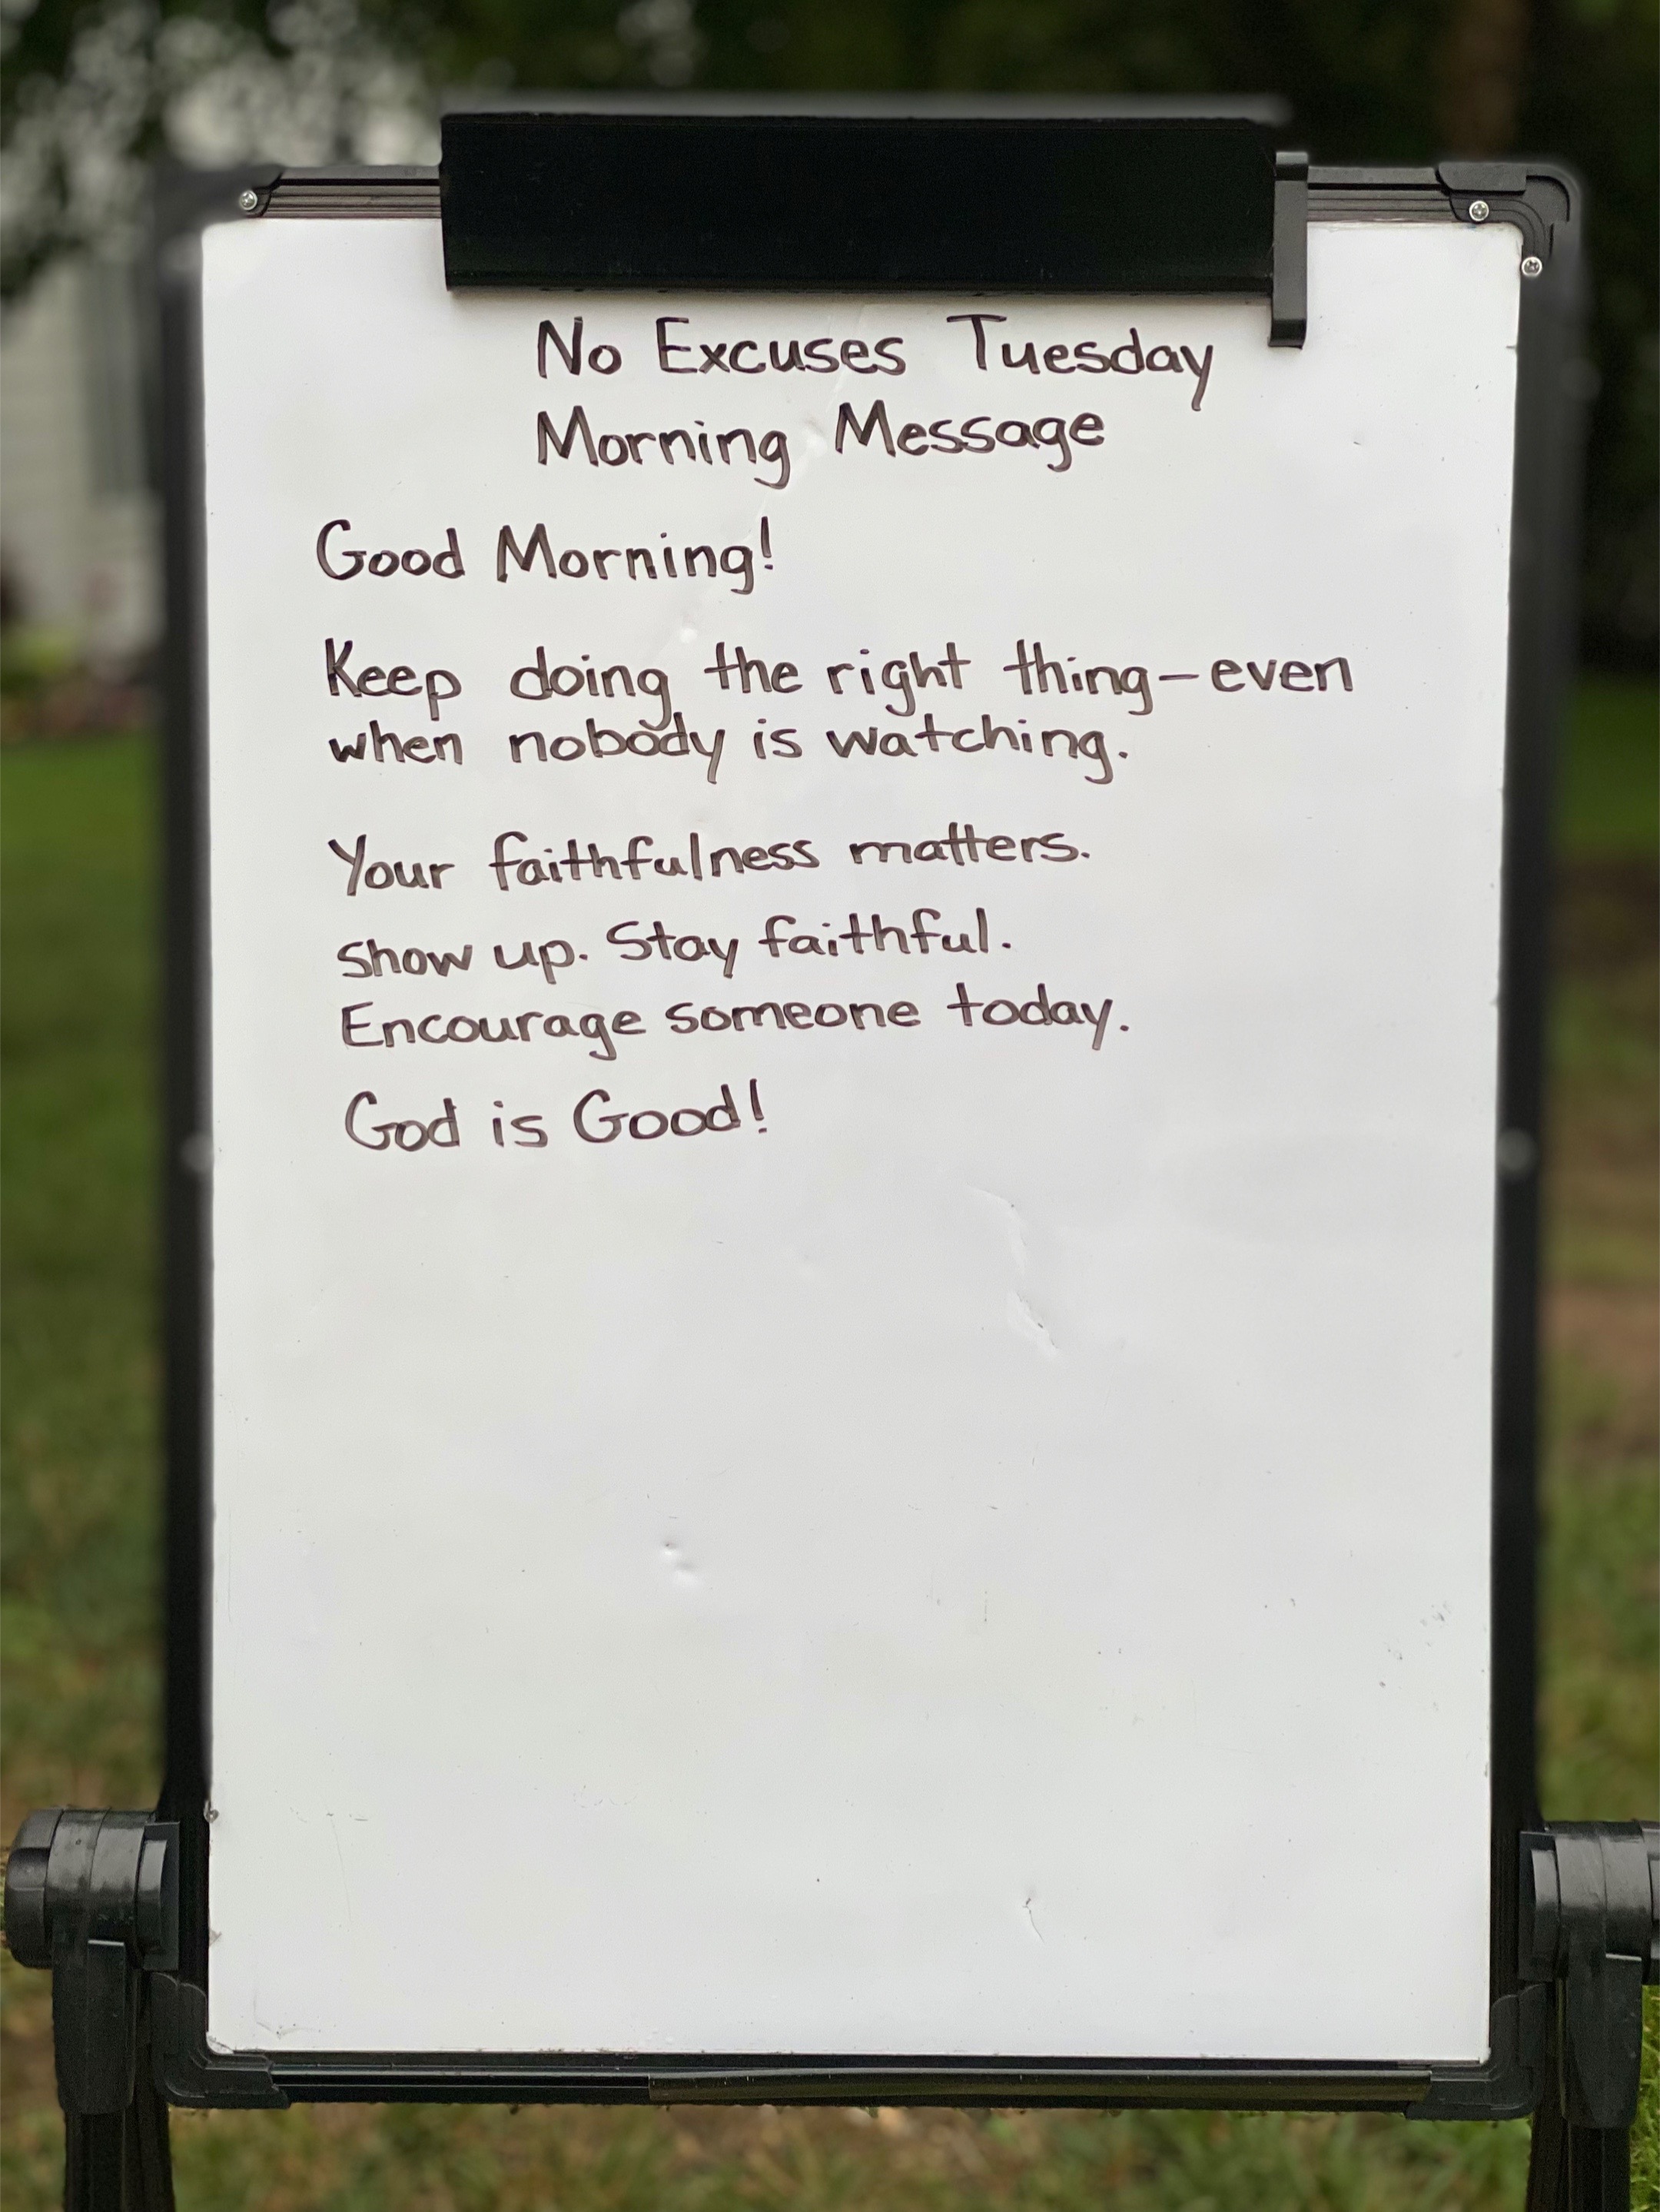 No Excuses Tuesday
Morning Message
Good Morning!
Keep doing the right thing—even
when nobody is watching.
Your faithfulness matters.
Show up. Stay faithful.
Encourage someone today.
God is Good!